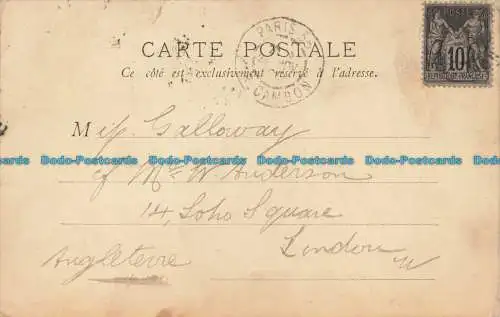 CARTE POSTALE
Ce côté est exclusivement réservé à l'adresse.
PARIS
CAMBON
POSTE
10
REPUBLIQUE FRANCAISE
Miss Galloway
c/ Mrs W. Anderson
14, Soho Square
London
W
Angleterre
Dodo-Postcards Dodo-Postcards Dodo-Postcards Dodo-Postcards Dodo-Postcards